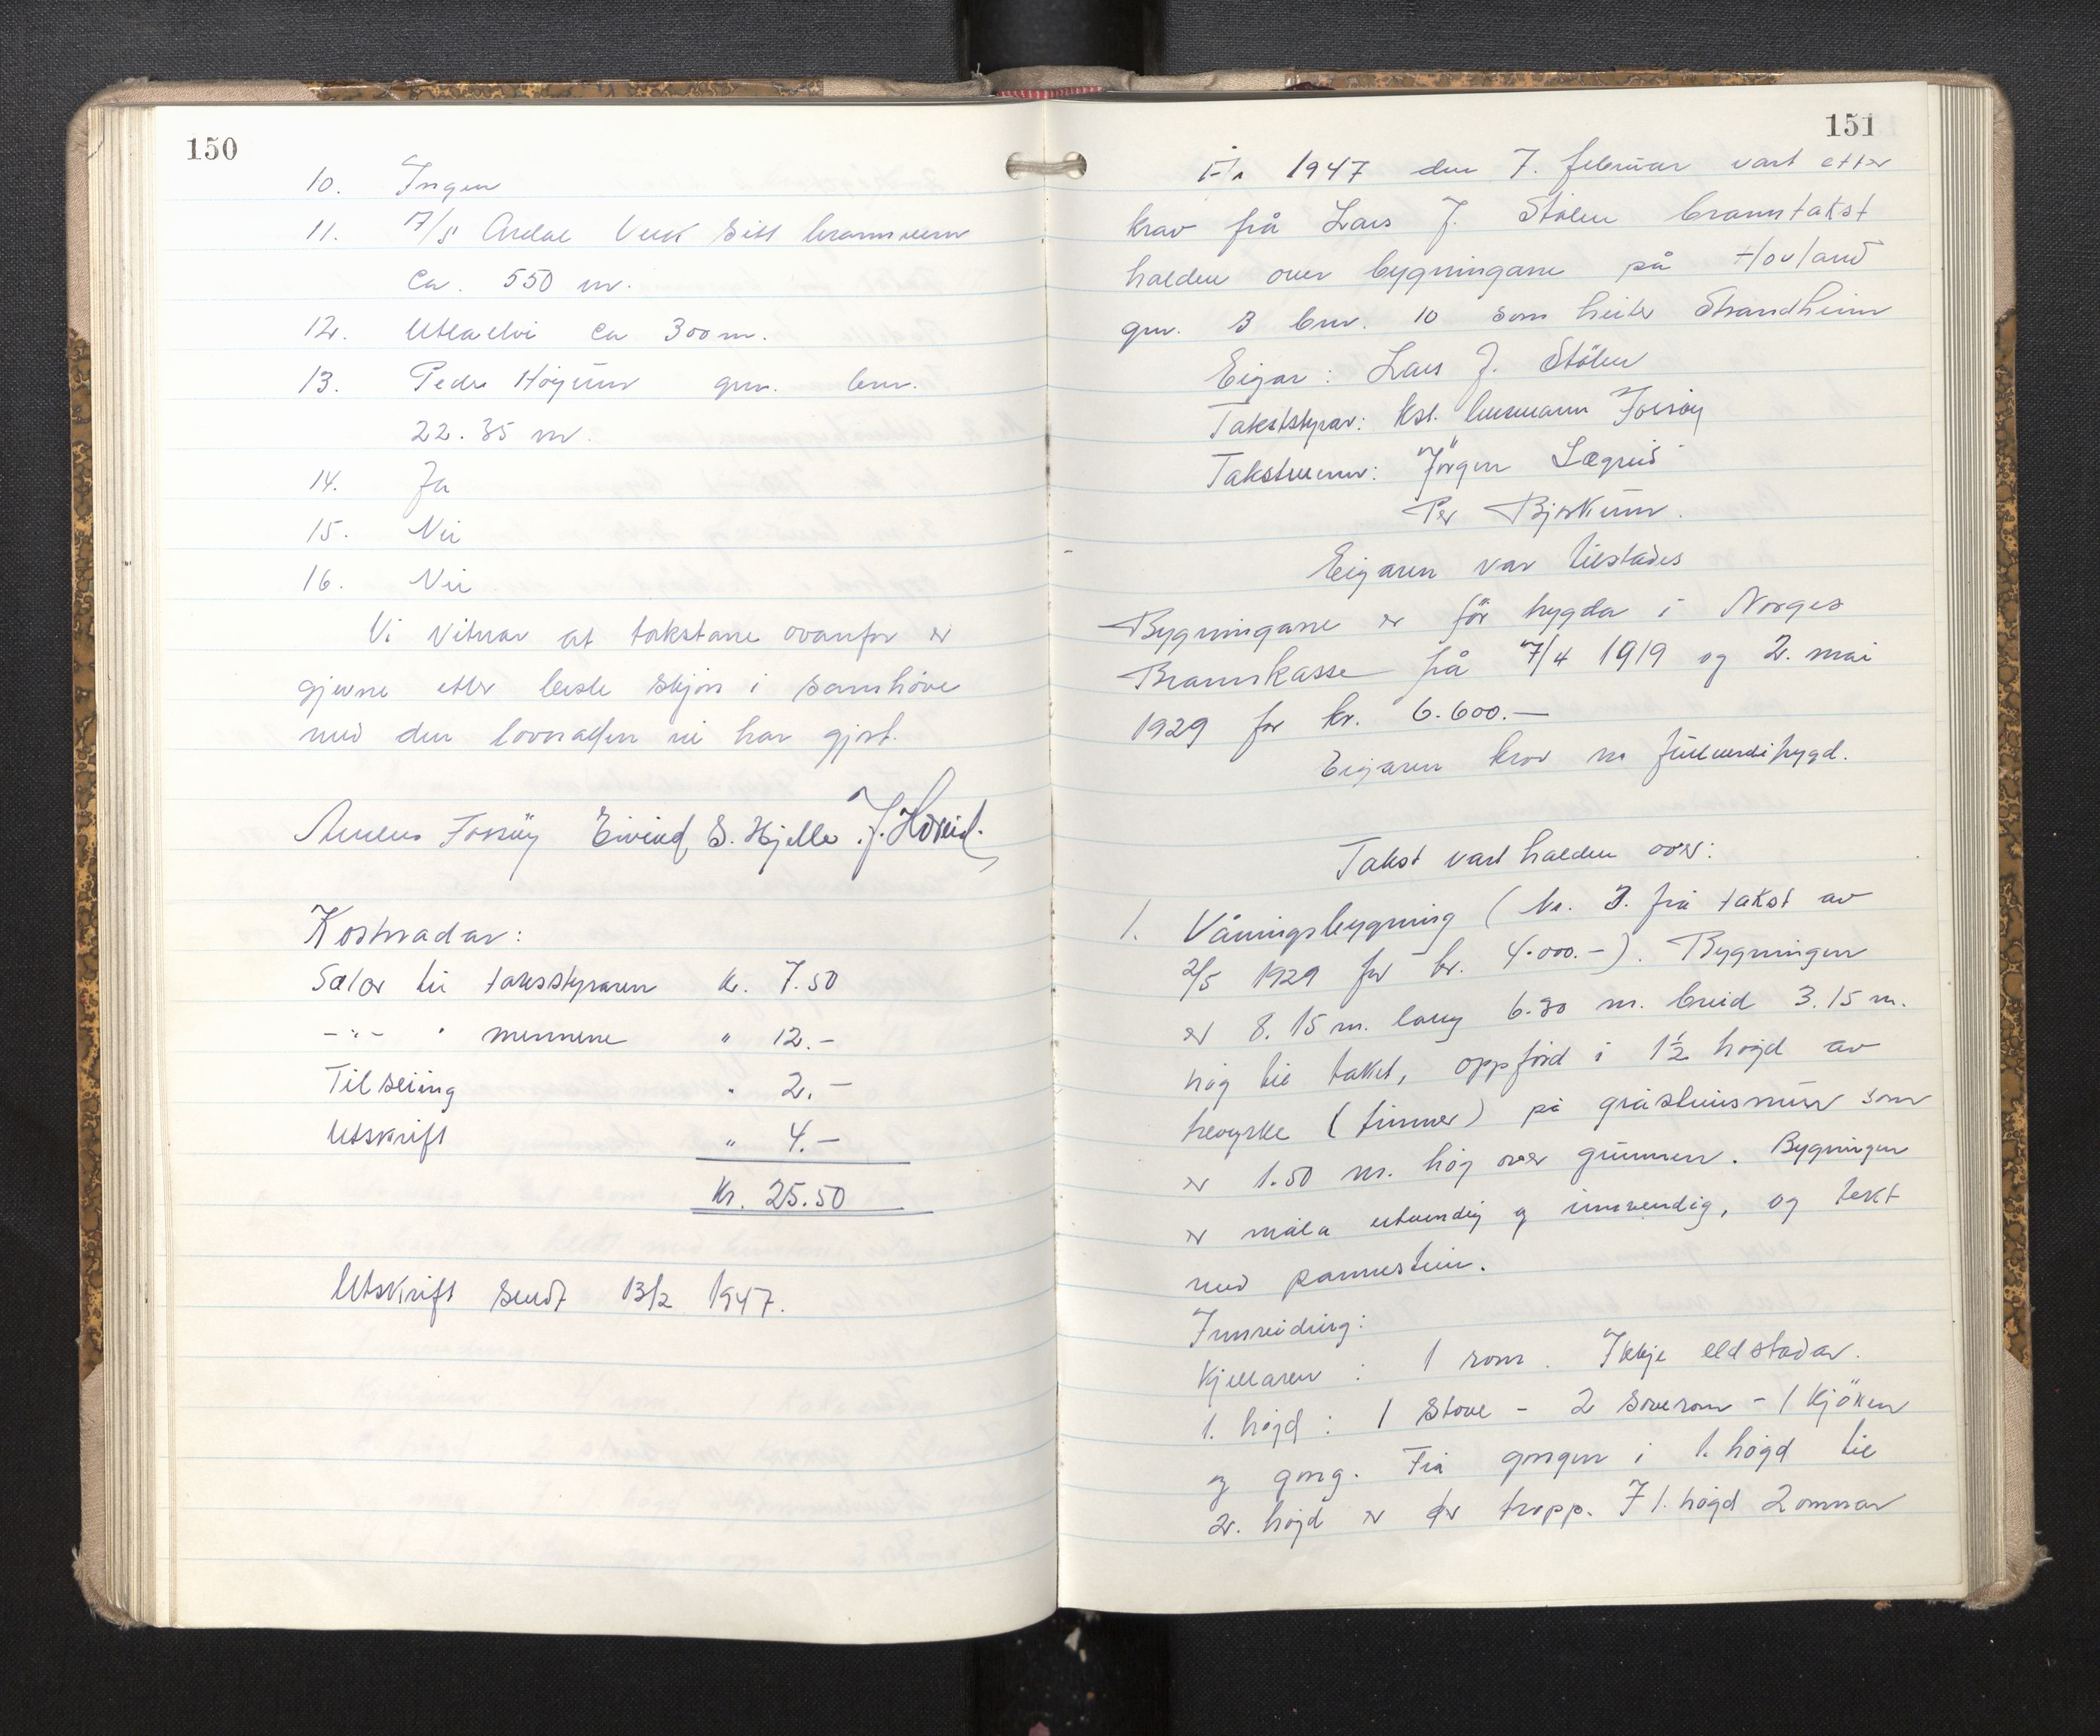 150
10. Ingen
11. A/S Årdal Verk sitt brannvern
ca. 550 m.
12. Utlaelvi ca 300 m.
13. Peder Högum gnr. bnr.
22.35 m.
14. Ja
15. Nei
16. Nei
Vi vitnar at takstane ovanfor er
gjevne etter beste skjön i samhöve
med den lovnaden vi har gjort.
Eivind S. Hjelle
Kostnadar:
Salær til takststyraren kr. 7.50
-"- " mennene " 12.-
Tilseiing " 2.-
Utskrift " 4.-
Kr. 25.50
Utskrift sendt 13/2 1947.
151
År 1947 den 7. februar vart etter
krav frå Lars J. Stölen branntakst
halden over bygningane på Hovland
gnr. 3 bnr. 10 som heiter Strandheim
Eigar: Lars J. Stölen
Takststyrar: kst. lensmann
Takstmenn: Jörgen Lægreid
Per Bjørkum.
Eigaren var tilstades
Bygningane er för trygda i Norges
Brannkasse frå 7/4 1919 og 2. mai
1929 for kr. 6.600.-
Eigaren krev no fullverditrygd.
Takst vart halden over:
1. Våningsbygning (Nr. 3. frå takst av
2/5 1929 for kr. 4.000.-). Bygningen
er 8.15 m. lang 6.30 m. breid 3.15 m.
høg til taket, oppförd i 1½ högd av
treverke (timmer) på gråsteinsmur som
er 1.50 m. høg over grunnen. Bygningen
er måla utvendig og innvendig, og tekt
med pannestein.
Innreiding:
Kjellaren: 1 rom. Ikkje eldstadar.
1. högd: 1 stove - 2 soverom - 1 kjöken
og gong. Frå gongen i 1. högd til
2. högd er der tropp. I 1. högd 2 omnar